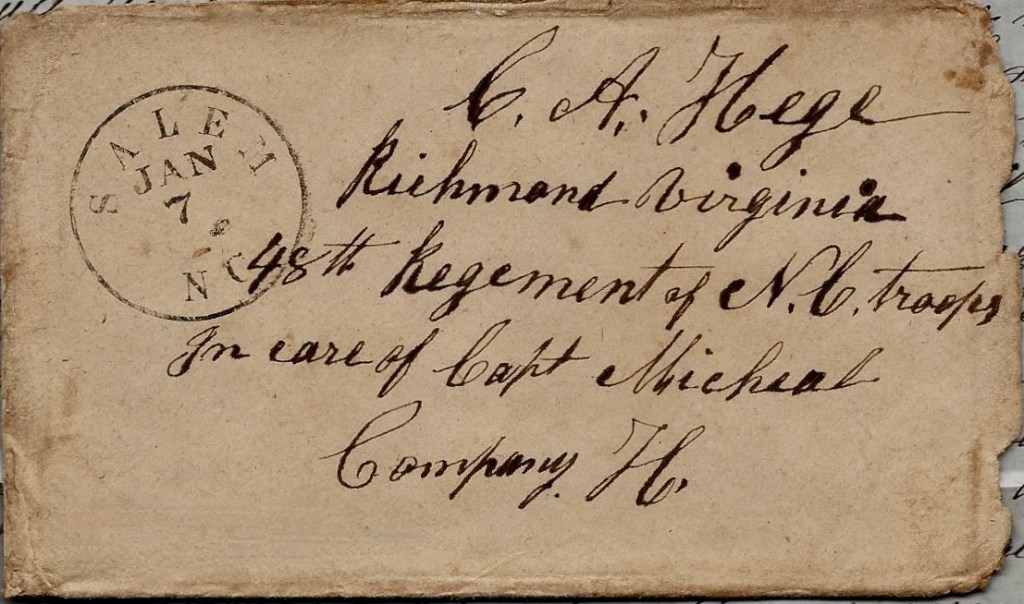 SALEM
JAN
7
N C
C. A. Hege
Richmond Virginia
48th Regement of N. C. troops
In care of Capt Micheal
Company H.